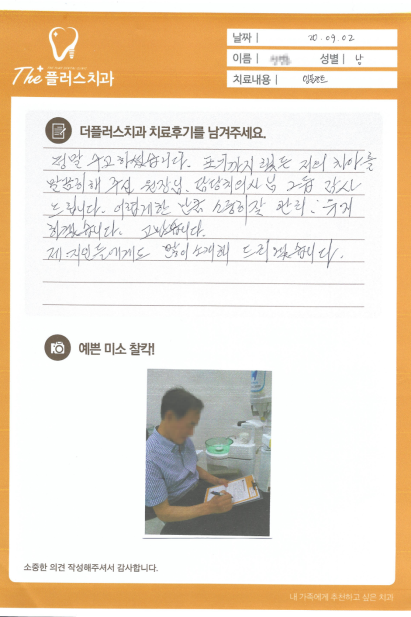 날짜 | 20. 09. 02
이름 | 성별 | 남
치료내용 | 임플란트
The+ 플러스치과
더플러스치과 치료후기를 남겨주세요.
정말 수고하셨습니다. 포기까지 했는 저의 치아를
말끔히해 주신 원장님, 담당치의사님 그름 감사
드립니다. 어렵게한 만큼 소중히잘 관리, 유지
하겠습니다. 고맙습니다.
제 지인들에게도 많이 소개해 드리겠습니다.
예쁜 미소 찰칵!
소중한 의견 작성해주셔서 감사합니다.
내 가족에게 추천하고 싶은 치과